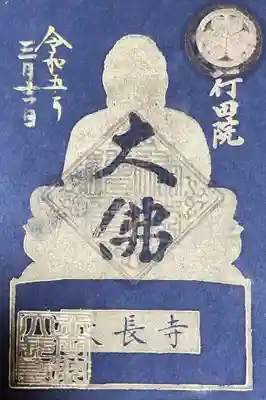 行田院
大佛
令和五年
三月十一日
大長寺